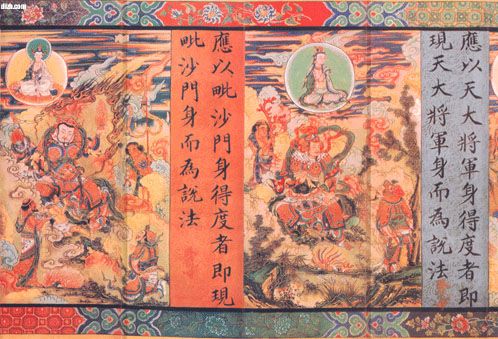 應以天大將軍身得度者即
現天大將軍身而為說法
應以毗沙門身得度者即現
毗沙門身而為說法